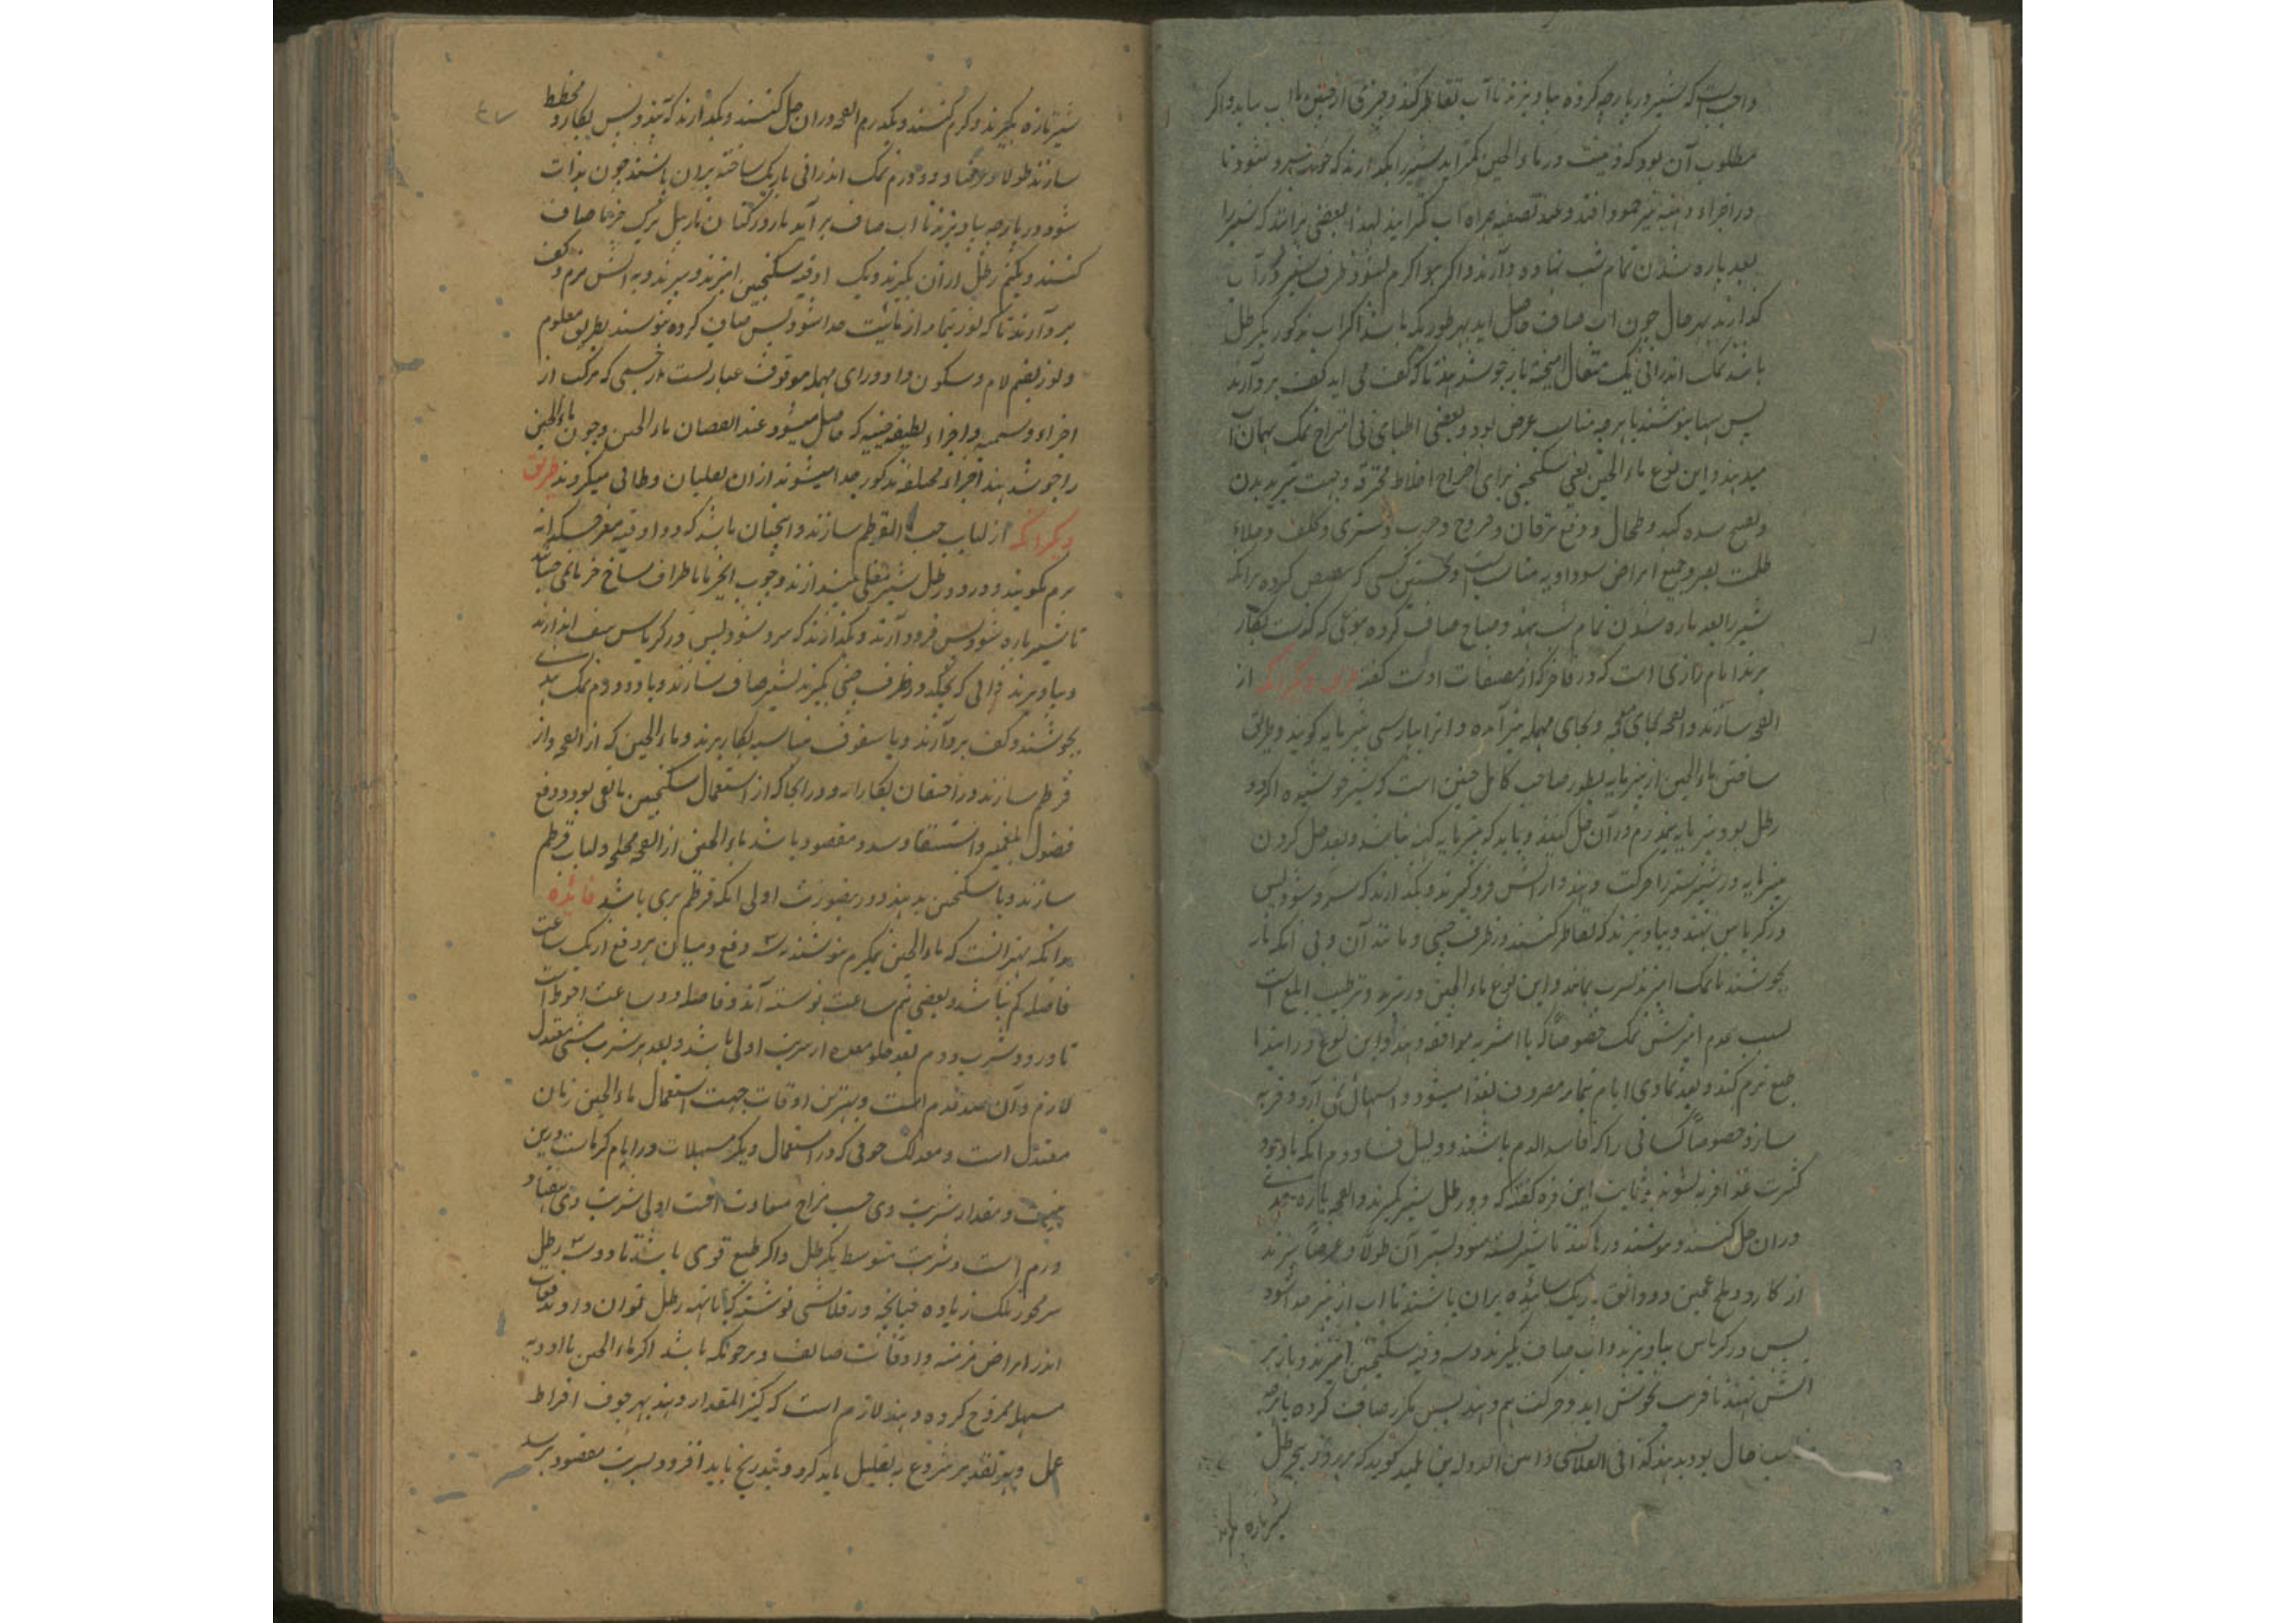 واجب است که شیر در پارچه کرده بیاویزند تا آب تقاطر کند و چیزی از جبن با آب نیاید و اگر
مطلوب آن بود که دهنیت در ماء الجبن کمتر آید شیر را بگذارند که خوب سرد شود تا
در اجزاء دهنیه نیز جمود افتد و عند تصفیه همراه آب کمتر آیند لهذا بعضی برانند که شیر را
بعد پاره شدن تمام شب نهاده دارند و اگر هوا گرم بود ظرف شیر در آب
گذارند بهر حال چون آب صاف حاصل آید بهر طوریکه باشد اگر آب مذکور یکرطل
باشد نمک اندرانی یک مثقال آمیخته باز جوش دهند تا که کف می آید کف بردارند
پس بنوشند با هرچه مناسب مرض بود و بعضی اطبای بی امتزاج نمک همان آب
میدهند و این نوع ماء الجبن یعنی سکنجبینی برای اخراج اخلاط محترقه و جهت تبرید بدن
و تفتیح سده کبد و طحال و دفع یرقان و قروح و جرب و شری و کلف و جلاء
ظلمت بصر و جمیع امراض سوداویه مناسب است و نخستین کسی که تنصیص کرده برانکه
شیر را بعد پاره شدن تمام شب نهند و صباح صاف کرده بنوعی که گذشت بکار
برند امام رازی است که در فاخر که از مصنفات اوست گفته طریق دیگر آنکه از
انفحه سازند و انفحه بجای معجمه و بجای مهمله نیز آمده و آنرا بپارسی پنیر مایه گویند و طریق
ساختن ماء الجبن از پنیر مایه بطور صاحب کامل چنین است که شیر جوشیده اگر دو
رطل بود پنیر مایه نیمدرم در آن حل کنند و باید که پنیر مایه کهنه نباشد و بعد حل کردن
پنیر مایه در شیر شیر را حرکت دهند و از آتش فرو گیرند و بگذارند که سرد شود پس
در کرپاس نهند و بیاویزند که تقاطر کنند در ظرف چینی و مانند آن و بی آنکه باز
بجوشند یا نمک آمیزند شرب نمایند و این نوع ماء الجبن در تبرید و ترطیب ابلغ است
بسبب عدم آمیزش نمک خصوصاً که با اشربه موافقه دهند و این نوع در ابتدا
طبع نرم کند و بعد تمادی ایام تمام مصروف بغذا میشود و اسهال نمی آرد و فربه
سازد خصوصاً کسانی را که فاسد الدم باشند و دلیل فساد دم آنکه با وجود
کثرت غذا فربه نشوند و ثابت ابن قره گفته که دو رطل شیر گیرند و انفحه
دران حل کنند و بپوشند و رها کنند تا شیر بسته شود پستر آن طولاً و عرضاً ببرند
از کارد و ملح عجین دو دانق باریک سائیده بران پاشند تا آب از پنیر جدا شود
پس در کرپاس بیاویزند و آب صاف بگیرند و سه وقیه سکنجبین آمیزند و باز بر
آتش نهند تا قریب بجوش آید و حرکت هم دهند پس مکرر صاف کرده با هرچه
مناسب حال بود بدهند کذا فی القلانسی و امین الدوله بن تلمیذ گوید که هر روز پنج رطل
شیر تازه بگیرند
شیر تازه بگیرند و گرم کنند و یکدرم انفحه دران حل کنند و بگذارند که بندد پس بکارد مخطط
سازند طولاً و عرضاً و دو درم نمک اندرانی باریک ساخته بران پاشند چون بذات
شود در پارچه بیاویزند تا آب صاف برآید باز در کتان یا زنبیل برگ خرما صاف
کنند و نیم رطل ازان بگیرند و یک اوقیه سکنجبین آمیزند و ببرند و به آتش نرم و کف
بردارند تا که لوز بتمامه از مائیت جدا شود پس صاف کرده بنوشند بطریق معلوم
و لوز بضم لام و سکون واو و رای مهمله موقوف عبارتست از جسمی که مرکب از
اجزاء دسمیه و اجزاء لطیفه جبنیه که حاصل میشود عند انفصال ماء الجبن و چون ماء الجبن
را جوش دهند اجزاء مختلفه مذکور جدا میشوند ازان بغلیان و طافی میگردند طریق
دیگر آنکه از لباب حب القرطم سازند و آنچنان باشد که دو اوقیه مغز خسکدانه
نرم بکوبند و در دو رطل شیر مغلی بیندازند و بچوب انجیر تا اطراف شاخ خرما بجنبانند
تا شیر پاره شود پس فرود آرند و بگذارند که سرد شود پس در کرپاس سفت اندازند
و بیاویزند و آبی که بچکد در ظرف چینی بگیرند پس صاف سازند و با دو درم نمک
بجوشند و کف بردارند و با سفوف مناسبه بکار برند و ماء الجبن که از انفحه و از
قرطم سازند در خفقان بکار آرد و در آنجا که از استعمال سکنجبین مانعی بود و دفع
فضول بلغمیه و استسقا و سدد مقصود باشد ماء الجبن از انفحه و لباب قرطم
سازند و با سکنجبین بدهند و درینصورت اولی آنکه قرطم بری باشد فائده
بدانکه بهتر آنست که ماء الجبن نیمگرم بنوشند بسه دفع و میان هر دفع از یک ساعت
فاصله کم نباشد و بعضی نیم ساعت نوشته اند و فاصله دو ساعت احوط است
تا ورود شرب دوم بعد خلو معده از شرب اولی باشد و بعد هر شرب مشی معتدل
لازم و آن صد قدم است و بهترین اوقات جهت استعمال ماء الجبن زمان
معتدل است و معذلک خوفی که در استعمال دیگر مسهلات در ایام گرماست درین
نیست و مقدار شربت وی حسب مزاج متفاوت است اولی شربت وی هفتاد
درم است و شربت متوسط یکرطل و اگر طبع قوی باشد تا دو سه رطل
هر روز بلکه زیاده چنانچه در قلانسی نوشته که تا نه رطل توان داد و بدفعات
اندر امراض مزمنه و اوقات صائف و هرچونکه باشد اگر ماء الجبن با ادویه
مسهل ممزوج کرده دهند لازم است که کثیر المقدار ندهند بهر خوف افراط
عمل و بهر تقدیر شروع به تقلیل باید کرد و بتدریج باید افزود و بشربت مقصود برسد